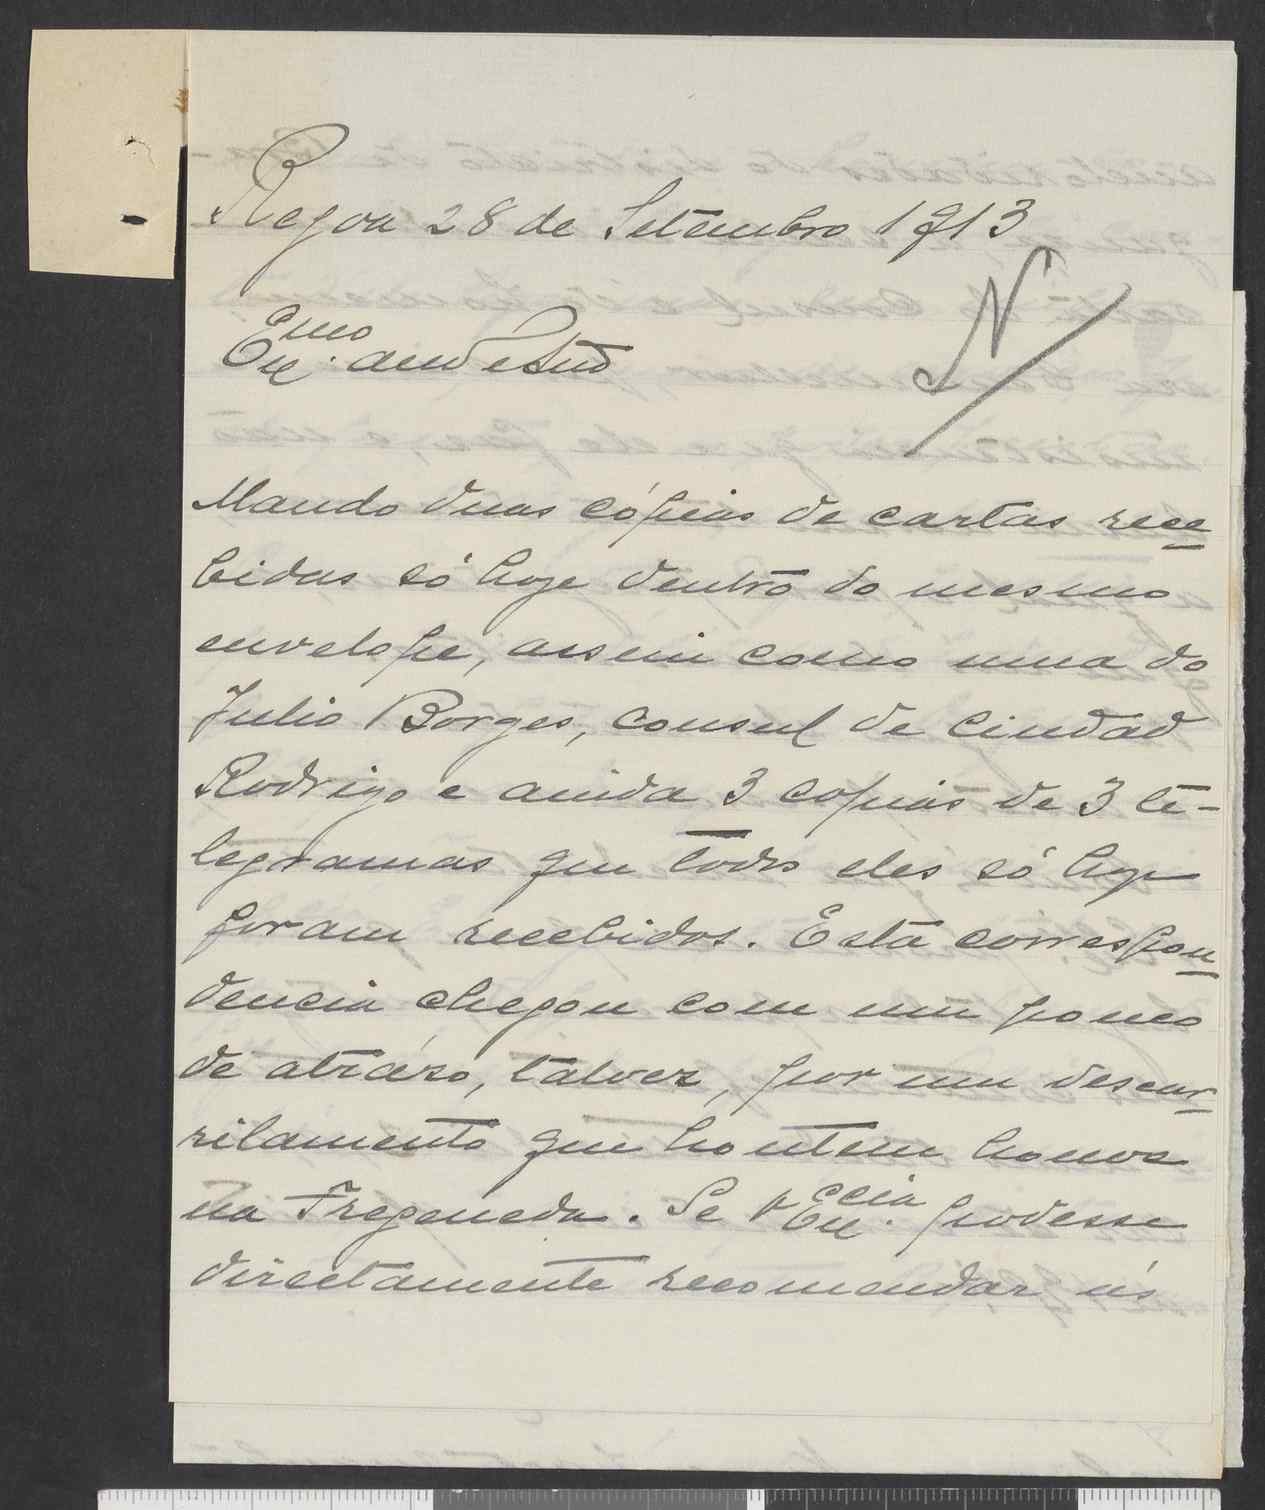 Regoa 28 de Setembro 1913
N
Exmo amo e Snr
Mando duas cópias de cartas rece
bidas só hoje dentro do mesmo
envelope, assim como uma do
Julio Borges, consul de Ciudad
Rodrigo e ainda 3 copias de 3 te-
legramas que todos eles só hoje
foram recebidos. Esta correspon
dencia chegou com um pouco
de atrázo, talvez, por um descar
rilamento que hontem houve
na Fregeneda. Se V Excia. podesse
directamente recomendar ás